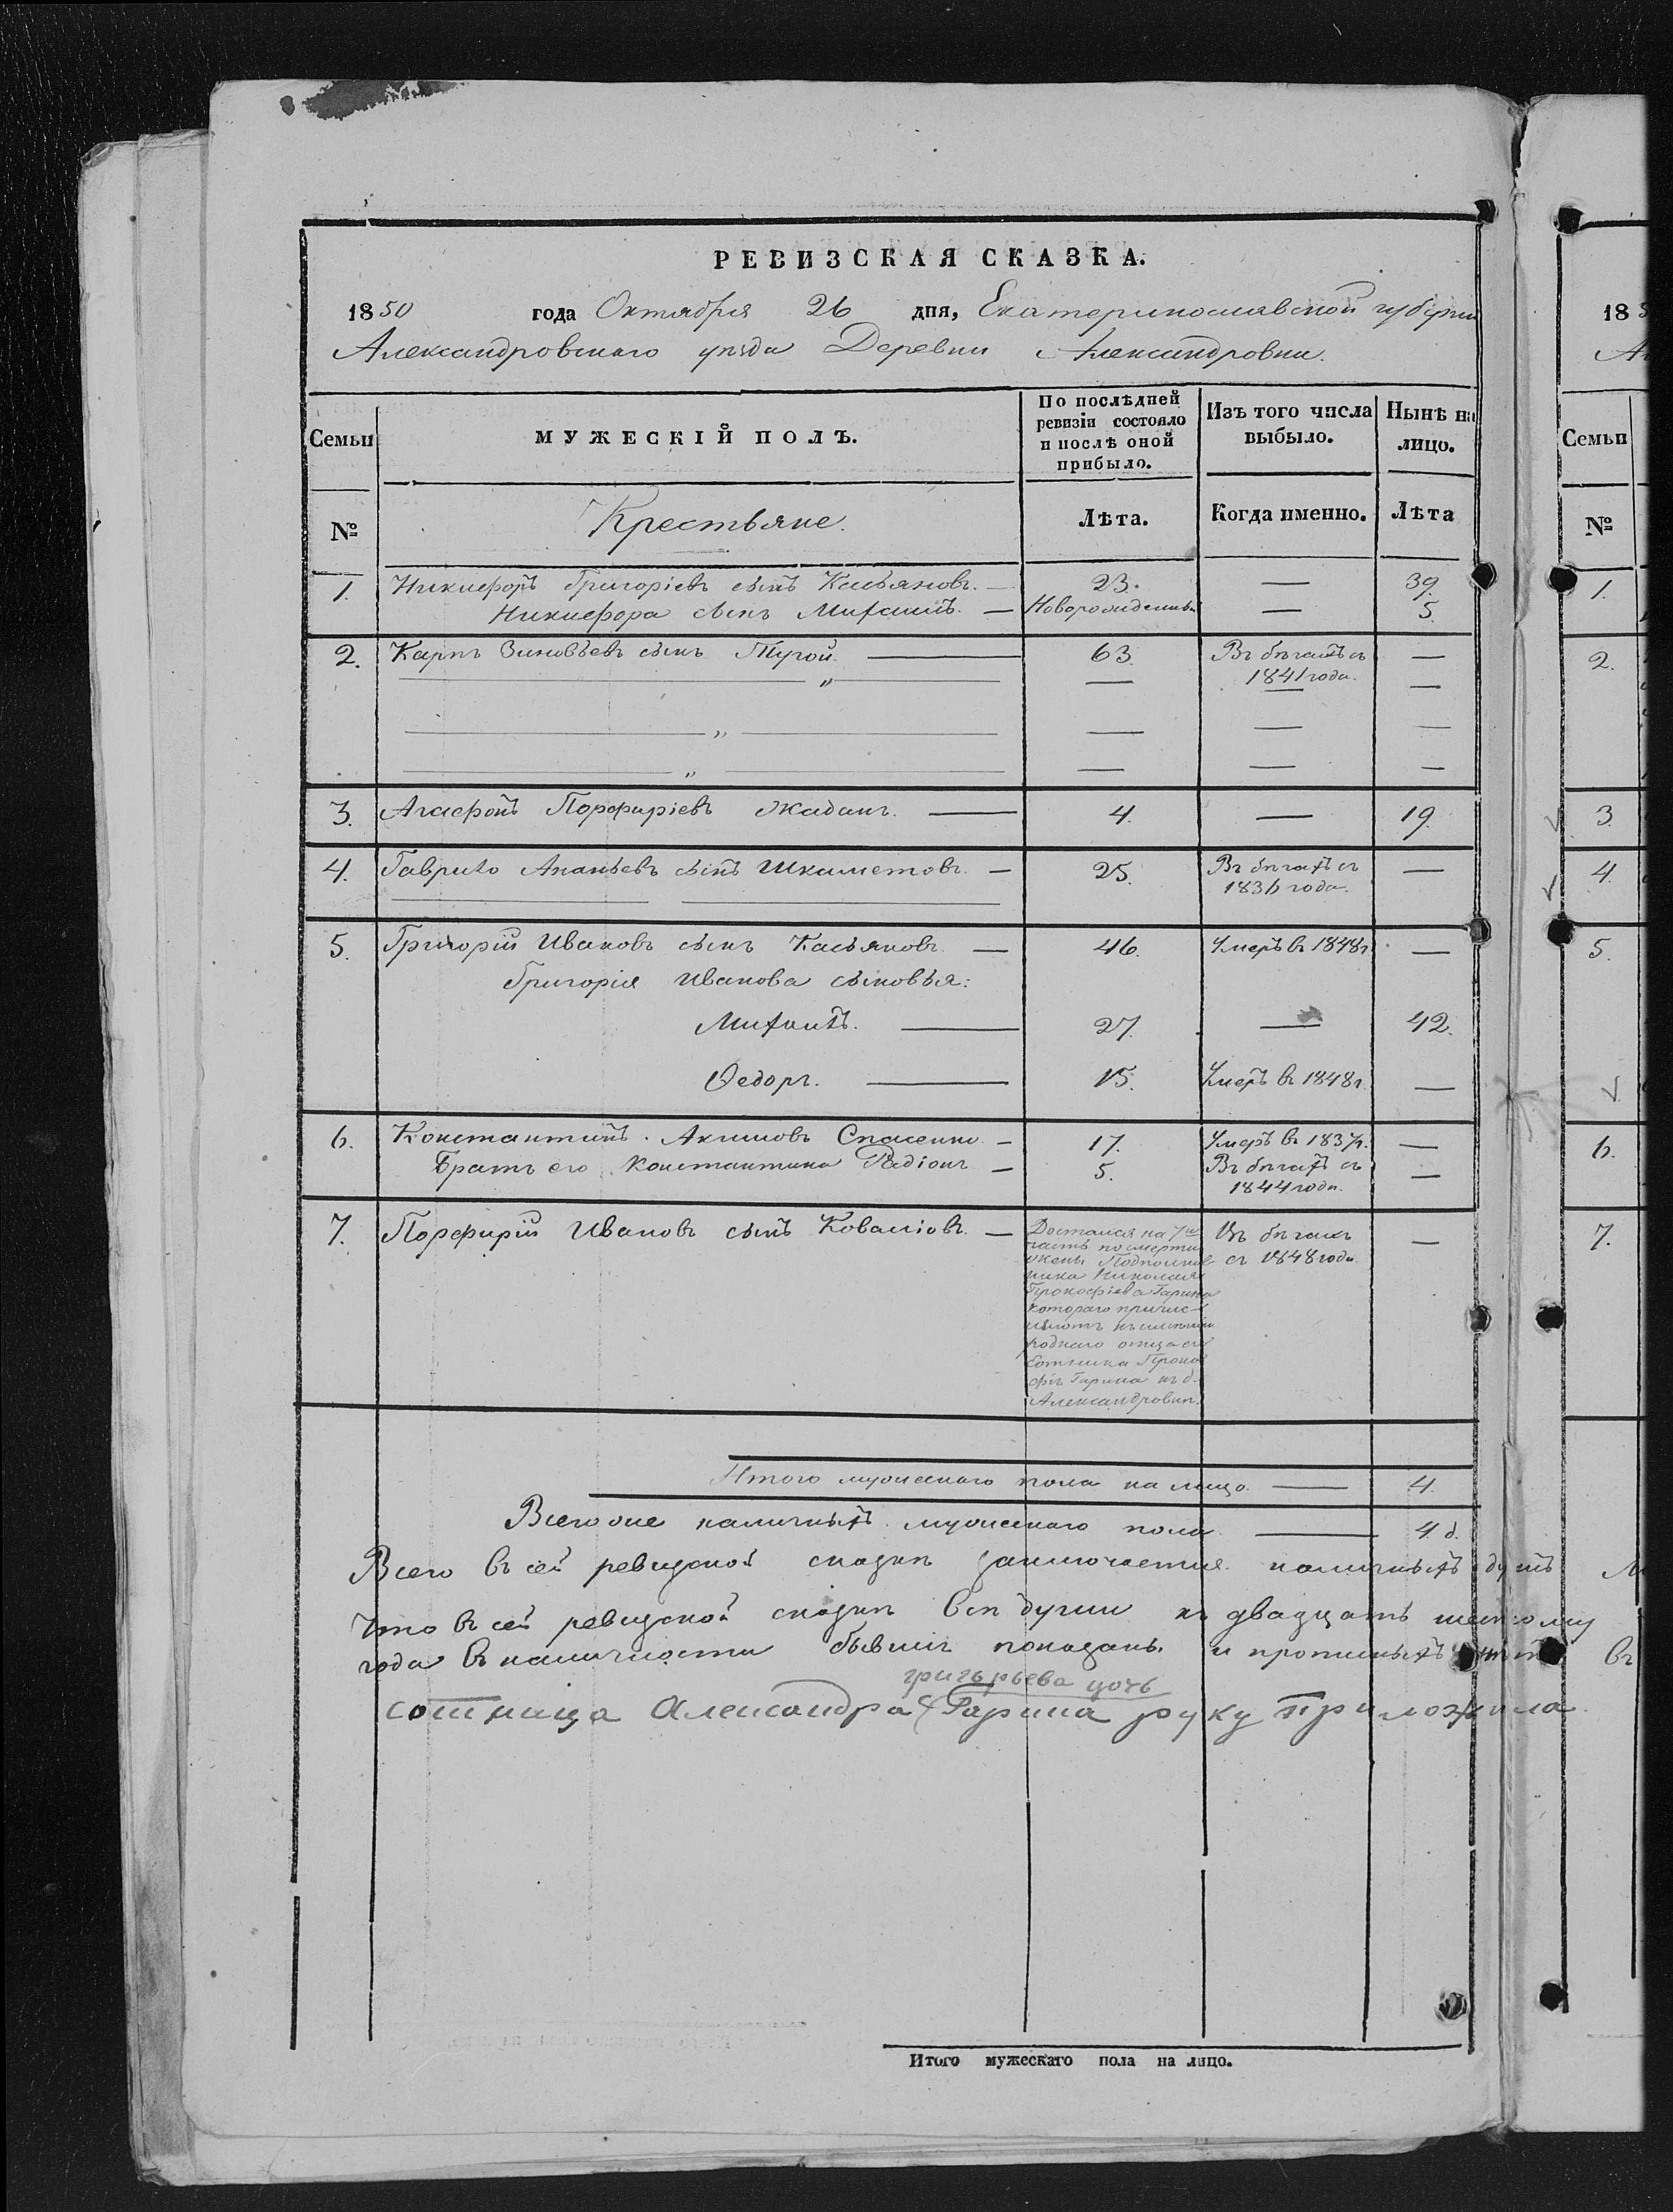 РЕВИЗСКАЯ СКАЗКА.
1850 года Октября 26 дня, Екатеринославской губернии
Александровскаго уѣзда Деревни Александровки.
Семьи
МУЖЕСКІЙ ПОЛЪ.
По послѣдней ревизіи состояло и послѣ оной прибыло.
Изъ того числа выбыло.
Нынѣ на лицо.
№
Крестьяне.
Лѣта.
Когда именно.
Лѣта
1. Никифоръ Григоріевъ сынъ Касьяновъ. — 23. — 39.
Никифора сынъ Михаилъ. — Новорожденный — 5.
2. Карпъ Зиновьевъ сынъ — 63. Въ бѣгахъ съ —
1841 года.
3. Агафонъ Порфиріевъ Жаданъ. — 4. — 19.
4. Гаврило Ананьевъ сынъ Шкаметовъ. — 25. Въ бѣгахъ съ —
года.
5. Григорій Ивановъ сынъ Касьяновъ — 46. Умеръ въ 1848 г. —
Григорія Иванова сыновья:
Михаилъ. — 27. — 42.
Ѳедоръ. — 15. Умеръ въ 1848 г. —
6. Константинъ Акимовъ Спасенко — 17. Умеръ въ 1837 г. —
Братъ его Константина Радіонъ — 5. Въ бѣгахъ съ —
1844 года.
7. Порфирій Ивановъ сынъ Ковалiовъ — Достался на 7ю Въ бѣгахъ —
часть по смерти съ 1848 года
жены Подполков
ника Николая
Прокофіева Гарина
котораго причис-
ляютъ къ имѣнію
роднаго отца его
Сотника Проко
фія Гарина въ д.
Александровкѣ.
Итого мужескаго пола на лицо — 4
Всего же наличныхъ мужескаго пола — 4 д.
Всего въ сей ревизской сказкѣ заключается наличныхъ душъ
Что въ сей ревизской сказкѣ всѣ души къ двадцать шестому
года въ наличности бывшія показаны и прописныхъ нѣтъ
григорьева дочь
сотница Александра Гарина руку приложила
Итого мужескаго пола на лицо.
18
Семьи
№
1.
2.
3.
4.
5.
6.
7.